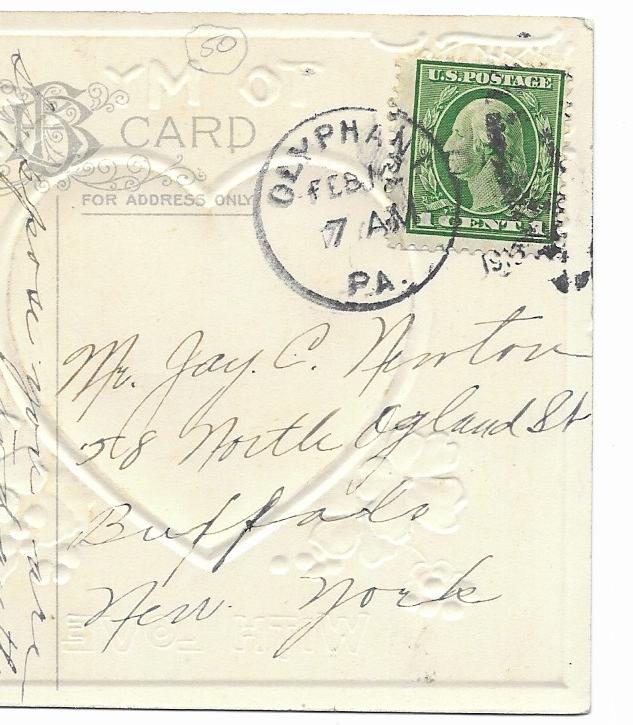 50
TO MY
CARD
FOR ADDRESS ONLY
U.S. POSTAGE
1 CENT 1
OLYPHANT
FEB
7 AM
PA.
1913
Mr. Jay. C. Newton
58 North Ogland St
Buffalo
New York
WITH LOVE
you are